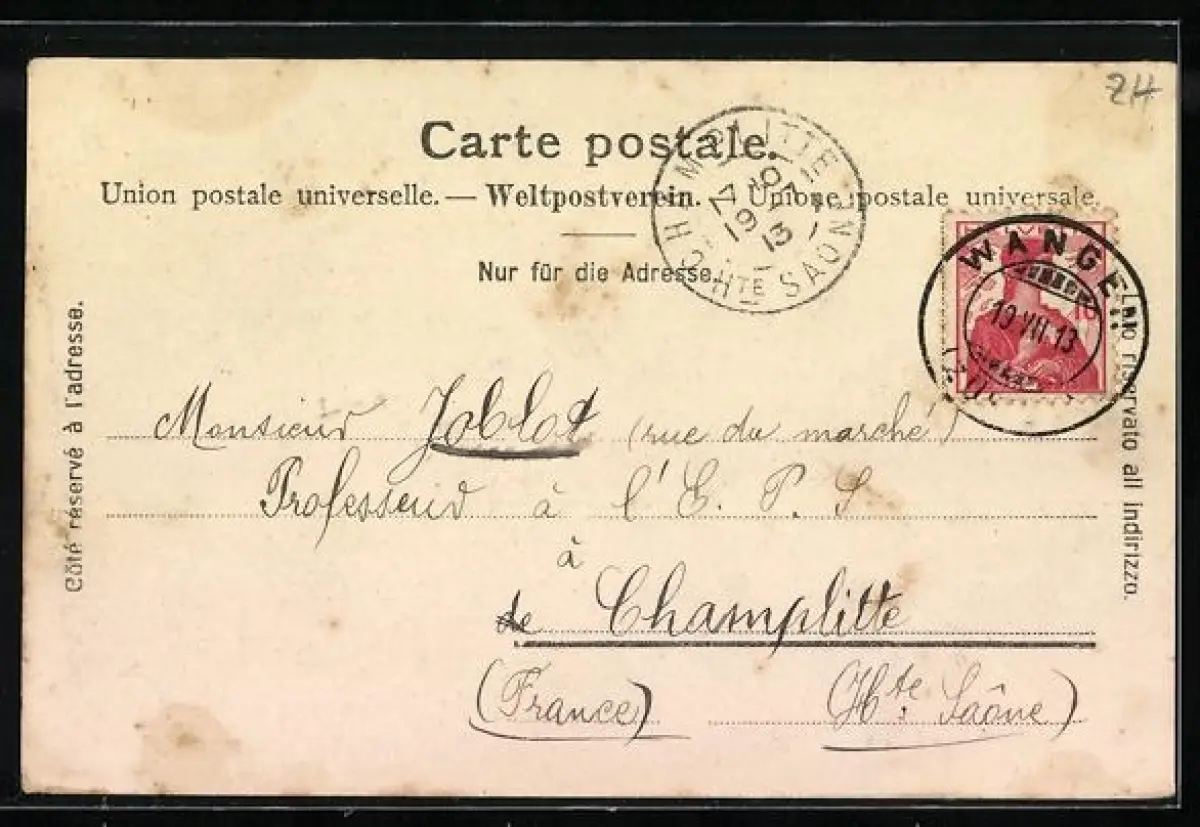 ZH
Carte postale.
Union postale universelle. — Weltpostverein. — Unione postale universale.
Nur für die Adresse.
Côté réservé à l'adresse.
Lato riservato all indirizzo.
CHAMPLITTE
19
13
HTE SAONE
WANGEN
19 VII 13
10
Monsieur Joblot (rue du marché)
Professeur à l'E. P. S
à
de Champlitte
(France) (Hte. Saône)